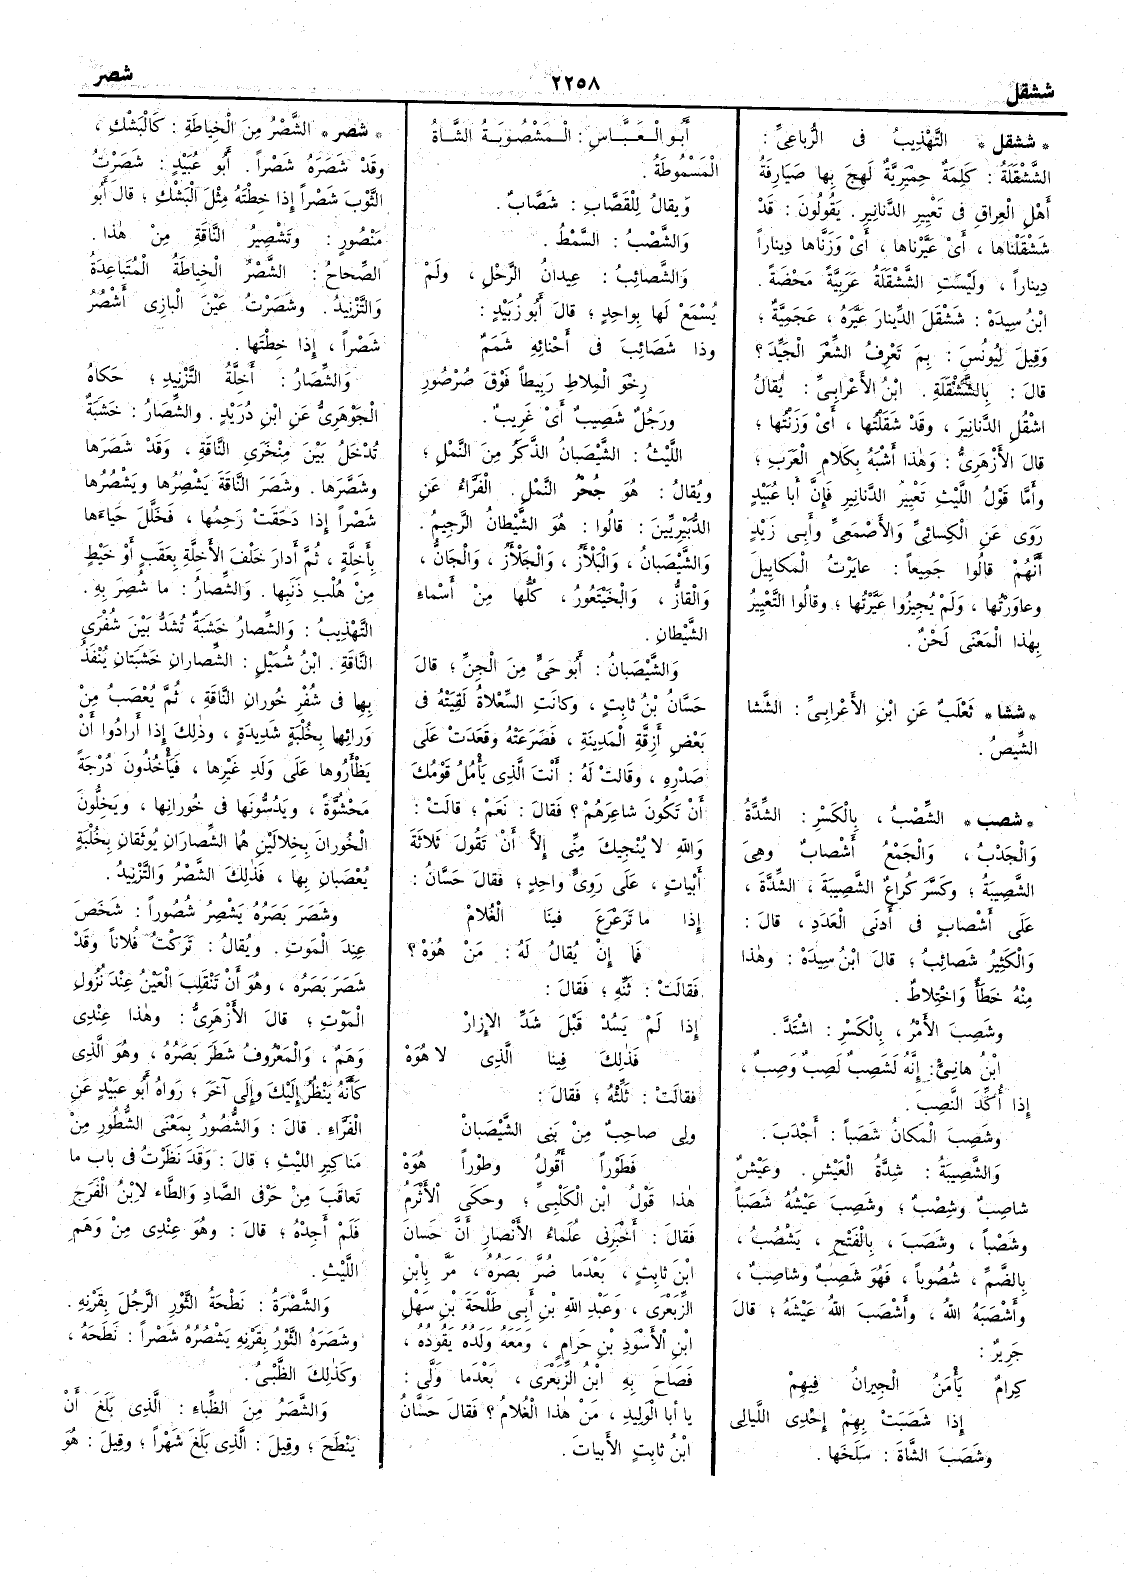 ششقل
٢٢٥٨
شصر
* ششقل * التَّهْذِيبُ فى الرُّباعِىِّ :
الشَّشْقَلَةُ : كَلِمَةٌ حِمْيَرِيَّةٌ لَهِجَ بِها صَيارِفَةُ
أَهْلِ الْعِراقِ فى تَعْيِيرِ الدَّنانِيرِ. يَقُولُونَ : قَدْ
شَشْقَلْناها ، أَىْ عَيَّرْناها ، أَىْ وَزَنَّاها دِيناراً
دِيناراً ، ولَيْسَتِ الشَّشْقَلَةُ عَرَبِيَّةً مَحْضَةً .
ابْنُ سِيدَهْ : شَشْقَلَ الدِّينارَ عَيَّرَهُ ، عَجَمِيَّةٌ ؛
وَقِيلَ لِيُونُسَ : بِمَ تَعْرِفُ الشِّعْرَ الْجَيِّدَ ؟
قالَ : بِالشَّشْقَلَةِ . ابْنُ الأَعْرابِىِّ : يُقالُ
اشْقُلِ الدَّنانِيرَ ، وقَدْ شَقَلْتُها ، أَىْ وَزَنْتُها ؛
قالَ الأَزْهَرِىُّ : وَهٰذا أَشْبَهُ بِكَلامِ الْعَرَبِ ؛
وأَمَّا قَوْلُ اللَّيْثِ تَعْيِيرُ الدَّنانِيرِ فَإِنَّ أَبا عُبَيْدٍ
رَوَى عَنِ الْكِسائِىِّ وَالأَصْمَعِىِّ وأَبِى زَيْدٍ
أَنَّهُمْ قالُوا جَمِيعاً : عايَرْتُ الْمَكايِيلَ
وعاوَرْتُها ، وَلَمْ يُجِيزُوا عَيَّرْتُها ؛ وقالُوا التَّعْيِيرُ
بِهٰذا الْمَعْنَى لَحْنٌ .
* ششا * ثَعْلَبٌ عَنِ ابْنِ الأَعْرابِىِّ : الشَّشا
الشِّيصُ .
* شصب * الشِّصْبُ ، بِالْكَسْرِ : الشِّدَّةُ
وَالْجَدْبُ ، وَالْجَمْعُ أَشْصابٌ وهِىَ
الشَّصِيبَةُ ؛ وَكَسَّرَ كُراعٌ الشَّصِيبَةَ ، الشِّدَّةَ ،
عَلَى أَشْصابٍ فى أَدنَى الْعَدَدِ ، قالَ :
وَالْكَثِيرُ شَصائِبُ ؛ قالَ ابْنُ سِيدَهْ : وهٰذا
مِنْهُ خَطَأٌ وَاخْتِلاطٌ .
وشَصِبَ الأَمْرُ ، بِالْكَسْرِ : اشْتَدَّ .
ابْنُ هانِئٍ : إِنَّهُ لَشَصِبٌ لَصِبٌ وَصِبٌ ،
إِذا أُكِّدَ النَّصِبُ .
وشَصِبَ الْمَكانُ شَصَباً : أَجْدَبَ .
وَالشَّصِيبَةُ : شِدَّةُ الْعَيْشِ . وعَيْشٌ
شاصِبٌ وشِصْبٌ ؛ وشَصِبَ عَيْشُهُ شَصَباً
وشَصْباً ، وشَصَبَ ، بِالْفَتْحِ ، يَشْصُبُ ،
بِالضَّمِّ ، شُصُوباً ، فَهُوَ شَصِبٌ وشاصِبٌ ،
وأَشْصَبَهُ اللهُ ، وأَشْصَبَ اللهُ عَيْشَهُ ؛ قالَ
جَرِيرٌ :
كِرامٌ يَأْمَنُ الْجِيرانُ فِيهِمْ
إِذا شَصَبَتْ بِهِمْ إِحْدِى اللَّيالِى
وشَصَبَ الشَّاةَ : سَلَخَها .
أَبُو الْعَبَّاسِ : الْمَشْصُوبَةُ الشَّاةُ
الْمَسْمُوطَةُ .
وَيقالُ لِلْقَصَّابِ : شَصَّابٌ .
وَالشَّصْبُ : السَّمْطُ .
وَالشَّصائِبُ : عِيدانُ الرَّحْلِ ، ولَمْ
يُسْمَعْ لَها بِواحِدٍ ؛ قالَ أَبُو زُبَيْدٍ :
وذا شَصائِبَ فى أَحْنائِهِ شَمَمٌ
رِخْوَ الْمِلاطِ رَبِيطاً فَوْقَ صُرْصُورِ
ورَجُلٌ شَصِيبٌ أَىْ غَرِيبٌ .
اللَّيْثُ : الشَّيْصَبانُ الذَّكَرُ مِنَ النَّمْلِ ؛
ويُقالُ : هُوَ جُحْرُ النَّمْلِ . الْفَرَّاءُ عَنِ
الدُّبَيْرِيِّينَ : قالُوا : هُوَ الشَّيْطانُ الرَّجِيمُ .
وَالشَّيْصَبانُ ، وَالْبَلْأَزُ ، وَالْجَلْأَزُ ، وَالْجانُّ ،
وَالْقازُّ ، وَالْخَيْتَعُورُ ، كُلُّها مِنْ أَسْماءِ
الشَّيْطانِ .
وَالشَّيْصَبانُ : أَبُو حَىٍّ مِنَ الْجِنِّ ؛ قالَ
حَسَّانُ بْنُ ثابِتٍ ، وكانَتِ السِّعْلاةُ لَقِيَتْهُ فى
بَعْضِ أَزِقَّةِ الْمَدِينَةِ ، فَصَرَعَتْهُ وقَعَدَتْ عَلَى
صَدْرِهِ ، وقالَتْ لَهُ : أَنْتَ الَّذِى يَأْمُلُ قَوْمُكَ
أَنْ تَكُونَ شاعِرَهُمْ ؟ فَقالَ : نَعَمْ ؛ قالَتْ :
وَاللهِ لا يُنْجِيكَ مِنِّى إِلاَّ أَنْ تَقُولَ ثَلاثَةَ
أَبْياتٍ ، عَلَى رَوِىٍّ واحِدٍ ؛ فَقالَ حَسَّانُ :
إِذا ما تَرَعْرَعَ فِينَا الْغُلامُ
فَما إِنْ يُقالُ لَهُ : مَنْ هُوَهْ ؟
فَقالَتْ : ثَنِّهِ ؛ فَقالَ :
إِذا لَمْ يَسُدْ قَبْلَ شَدِّ الإِزارْ
فَذٰلِكَ فِينا الَّذِى لا هُوَهْ
فقالَتْ : ثَلِّثْهُ ؛ فَقالَ :
ولِى صاحِبٌ مِنْ بَنِى الشَّيْصَبانْ
فَطَوْراً أَقُولُ وطَوْراً هُوَهْ
هٰذا قَوْلُ ابْنِ الْكَلْبِىِّ ؛ وحَكَى الْأَثْرَمُ
فَقالَ : أَخْبَرَنِى عُلَماءُ الأَنْصارِ أَنَّ حَسانَ
ابْنَ ثابِتٍ ، بَعْدَما ضُرَّ بَصَرُهُ ، مَرَّ بِابْنِ
الزِّبَعْرَى ، وَعَبْدِ اللهِ بْنِ أَبِى طَلْحَةَ بْنِ سَهْلِ
ابْنِ الْأَسْوَدِ بْنِ حَرامٍ ، ومَعَهُ وَلَدُهُ يَقُودُهُ ،
فَصَاحَ بِهِ ابْنُ الزِّبَعْرَى ، بَعْدَما وَلَّى :
يا أَبا الْوَلِيدِ ، مَنْ هٰذا الْغُلامُ ؟ فَقالَ حَسَّانُ
ابْنُ ثابِتٍ الأَبياتَ .
* شصر * الشَّصْرُ مِنَ الْخِياطَةِ : كَالْبَشْكِ ،
وقَدْ شَصَرَهُ شَصْراً . أَبُو عُبَيْدٍ : شَصَرْتُ
الثَّوْبَ شَصْراً إِذا خِطْتَهُ مِثْلَ الْبَشْكِ ؛ قالَ أَبُو
مَنْصُورٍ : وتَشْصِيرُ النَّاقَةِ مِنْ هٰذا .
الصِّحاحُ : الشَّصْرُ الْخِياطَةُ الْمُتَباعِدَةُ
وَالتَّزْنِيدُ . وشَصَرْتُ عَيْنَ الْبازِى أَشْصُرُ
شَصْراً ، إِذا خِطْتَها .
وَالشِّصَارُ : أَخِلَّةُ التَّزْنِيدِ ؛ حَكاهُ
الْجَوْهَرِىُّ عَنِ ابْنِ دُرَيْدٍ . والشِّصَارُ : خَشَبَةٌ
تُدْخَلُ بَيْنَ مِنْخَرَىِ النَّاقَةِ ، وَقَدْ شَصَرَها
وشَصَّرَها . وشَصَرَ النَّاقَةَ يَشْصِرُها ويَشْصُرُها
شَصْراً إِذا دَحَقَتْ رَحِمُها ، فَخَلَّلَ حَياءَها
بِأَخِلَّةٍ ، ثُمَّ أَدارَ خَلْفَ الأَخِلَّةِ بِعَقَبٍ أَوْ خَيْطٍ
مِنْ هُلْبِ ذَنَبِها . وَالشِّصارُ : ما شُصِرَ بِهِ .
التَّهْذِيبُ : وَالشِّصارُ خَشَبَةٌ تُشَدُّ بَيْنَ شُفْرَىِ
النَّاقَةِ . ابْنُ شُمَيْلٍ : الشِّصارانِ خَشَبَتانِ يُنْفَذُ
بِهِا فى شُفْرِ خُورانِ النَّاقَةِ ، ثُمَّ يُعْصَبُ مِنْ
وَرائِها بِخُلْبَةٍ شَدِيدَةٍ ، وذٰلِكَ إِذا أَرادُوا أَنْ
يَظْأَرُوها عَلَى وَلَدِ غَيْرِها ، فَيَأْخُذُونَ دُرْجَةً
مَحْشُوَّةً ، ويَدُسُّونَها فى خُورانِها ، ويَخِلُّونَ
الْخُورانَ بِخِلالَيْنِ هُمَا الشِّصارانِ يُوثَقانِ بِخُلْبَةٍ
يُعْصَبانِ بِها ، فَذٰلِكَ الشَّصْرُ وَالتَّزْنِيدُ .
وشَصَرَ بَصَرُهُ يَشْصِرُ شُصُوراً : شَخَصَ
عِنْدَ الْمَوْتِ . ويُقالُ : تَرَكْتُ فُلاناً وَقَدْ
شَصَرَ بَصَرُهُ ، وهُوَ أَنْ تَنْقَلِبَ الْعَيْنُ عِنْدَ نُزُولِ
الْمَوْتِ ؛ قالَ الأَزْهَرِىُّ : وهٰذا عِنْدِى
وَهَمٌ ، وَالْمَعْرُوفُ شَطَرَ بَصَرُهُ ، وهُوَ الَّذِى
كَأَنَّهُ يَنْظُرُ إِلَيْكَ وإِلَى آخَرَ ؛ رَواهُ أَبُو عبَيْدٍ عَنِ
الْفَرَّاءِ . قالَ : وَالشُّصُورُ بِمَعْنَى الشُّطُورِ مِنْ
مَناكِيرِ اللَّيْثِ ؛ قالَ : وَقَدْ نَظَرْتُ فى بابِ ما
تَعاقَبَ مِنْ حَرْفَىِ الصَّادِ وَالطَّاءِ لِابْنِ الْفَرَجِ
فَلَمْ أَجِدْهُ ؛ قالَ : وهُوَ عِنْدِى مِنْ وَهَمِ
اللَّيْثِ .
وَالشَّصْرَةُ : نَطْحَةُ الثَّوْرِ الرَّجُلَ بِقَرْنِهِ .
وشَصَرَهُ الثَّوْرُ بِقَرْنِهِ يَشْصُرُهُ شَصْراً : نَطَحَهُ ،
وكَذٰلِكَ الظَّبْىُ .
وَالشَّصَرُ مِنَ الظِّباءِ : الَّذِى بَلَغَ أَنْ
يَنْطَحَ ؛ وقِيلَ : الَّذِى بَلَغَ شَهْراً ؛ وقِيلَ : هُوَ